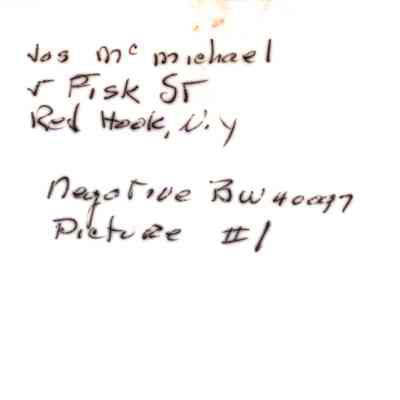 Jos Mc michael
5 Fisk St
Red Hook, N.Y
Negative BW 40097
Picture #1